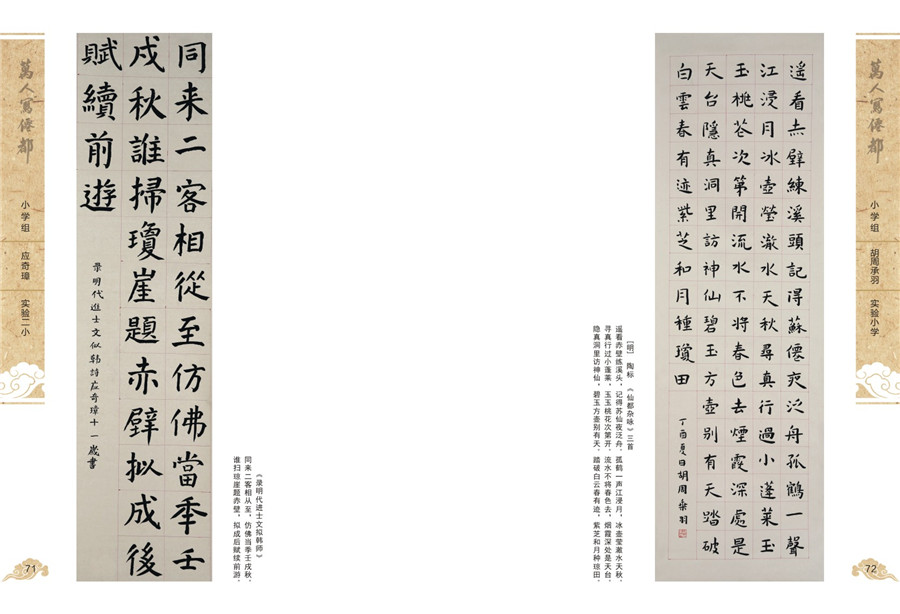 萬人寫僊都
小学组 应奇璋 实验二小
71
同来二客相從至仿佛當季壬
戍秋誰掃瓊崖題赤壁拟成後
賦續前遊
录明代進士文似韩詩应奇璋十一歲書
《录明代进士文拟韩师》
同来二客相从至，仿佛当季壬戌秋，
谁扫琼崖题赤壁，拟成后赋续前游，
[明] 陶标 《仙都杂咏》三首
遥看赤壁练溪头，记得苏仙夜泛舟，孤鹤一声江浸月，冰壶莹澈水天秋，
寻真行过小蓬莱，玉玉桃花次第开，流水不将春色去，烟霞深处是天台，
隐真洞里访神仙，碧玉方壶别有天，踏破白云春有迹，紫芝和月种琼田，
遥看赤壁練溪頭記得蘇僊夾泛舟孤鶴一聲
江浸月冰壺瑩澈水天秋尋真行過小蓬萊玉
玉桃花次第開流水不將春色去煙霞深處是
天台隱真洞里訪神仙碧玉方壺别有天踏破
白雲春有迹紫芝和月種瓊田
丁酉夏日胡周承羽
萬人寫僊都
小学组 胡周承羽 实验小学
72